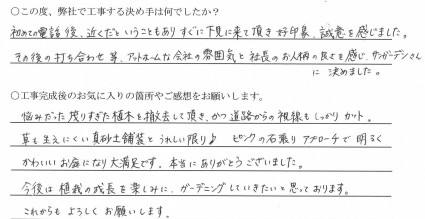 ○この度、弊社で工事する決め手は何でしたか?
初めての電話後、近くだということもありすぐに下見に来て頂き好印象、誠意を感じました。
その後の打ち合わせ等、アットホームな会社の雰囲気と社長のお人柄の良さを感じ、サンガーデンさん
に決めました。
○工事完成後のお気に入りの箇所やご感想をお願いします。
悩みだった茂りすぎた植木を撤去して頂き、かつ道路からの視線もしっかりカット。
草も生えにくい真砂土舗装とうれしい限り♪ ピンクの石張りアプローチで明るく
かわいいお庭になり大満足です。本当にありがとうございました。
今後は植栽の成長を楽しみに、ガーデニングしていきたいと思っております。
これからもよろしくお願いします。